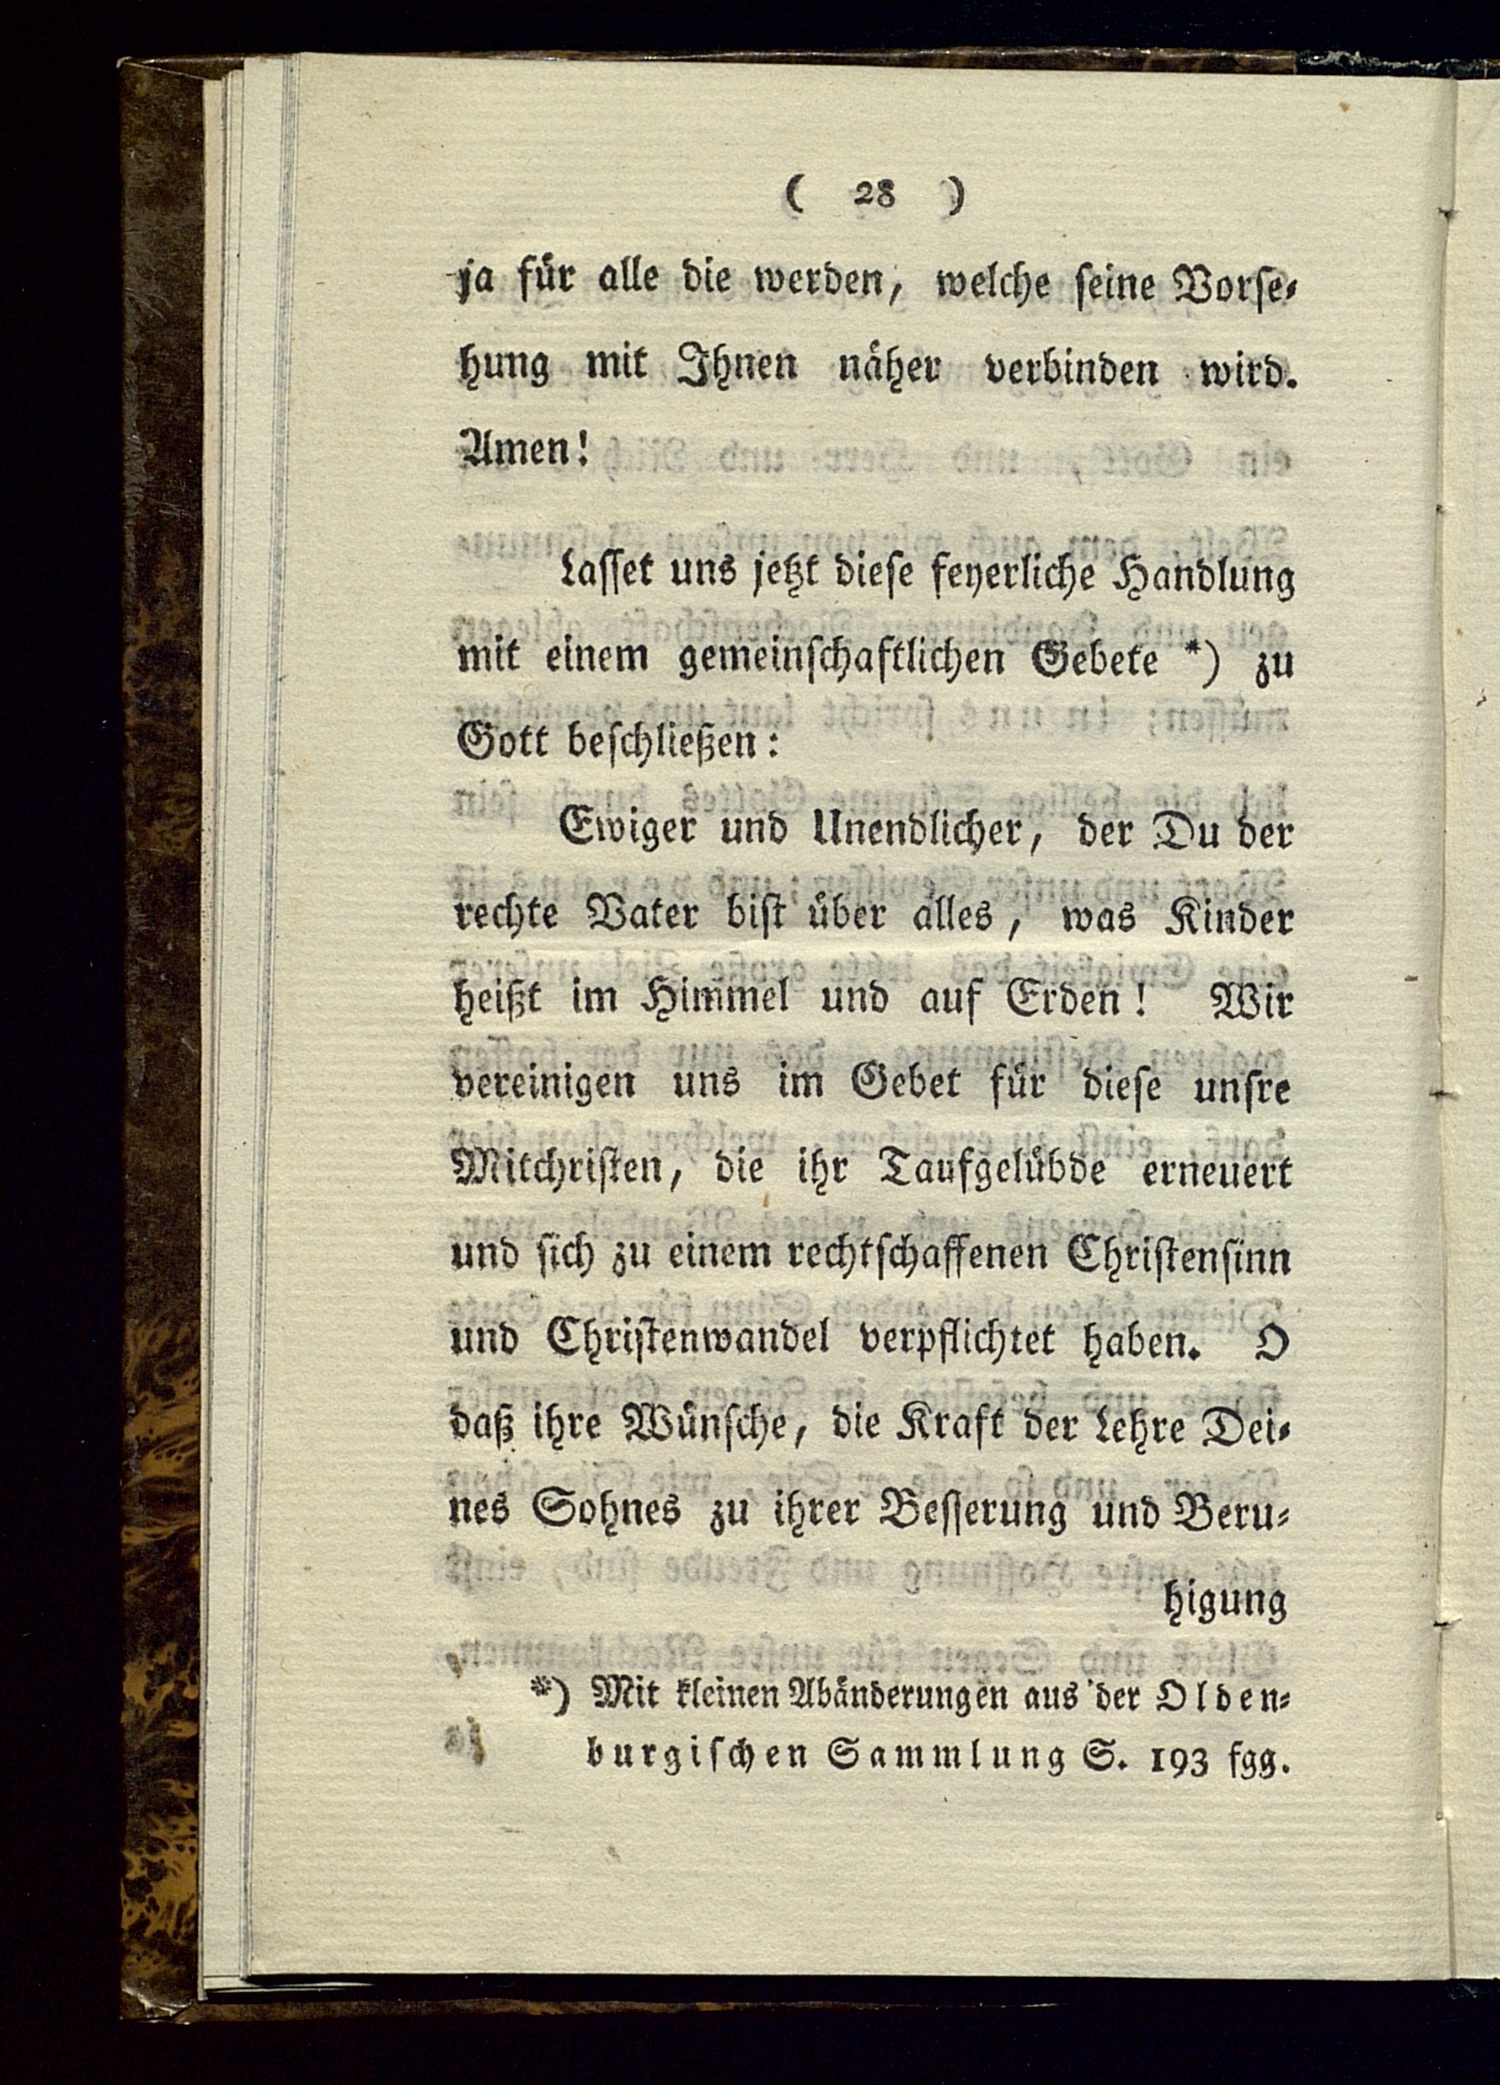 ( 28 )
ja für alle die werden, welche seine Vorse-
hung mit Ihnen näher verbinden wird.
Amen!
Lasset uns jetzt diese feyerliche Handlung
mit einem gemeinschaftlichen Gebete *) zu
Gott beschließen:
Ewiger und Unendlicher, der Du der
rechte Vater bist über alles, was Kinder
heißt im Himmel und auf Erden! Wir
vereinigen uns im Gebet für diese unsre
Mitchristen, die ihr Taufgelübde erneuert
und sich zu einem rechtschaffenen Christensinn
und Christenwandel verpflichtet haben. O
daß ihre Wünsche, die Kraft der Lehre Dei-
nes Sohnes zu ihrer Besserung und Beru-
higung
*) Mit kleinen Abänderungen aus der Olden-
burgischen Sammlung S. 193 fgg.